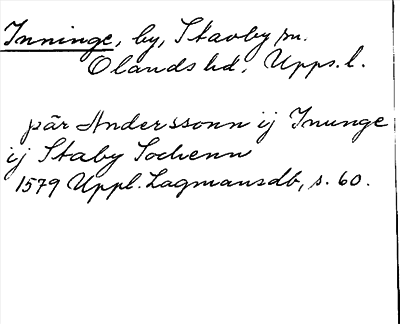 Inninge, by, Stavby sn.
Olands hd, Upps. l.
pär Anderssonn ij Inunge
ij Staby Sochenn
1579 Uppl. Lagmansdb, s. 60.